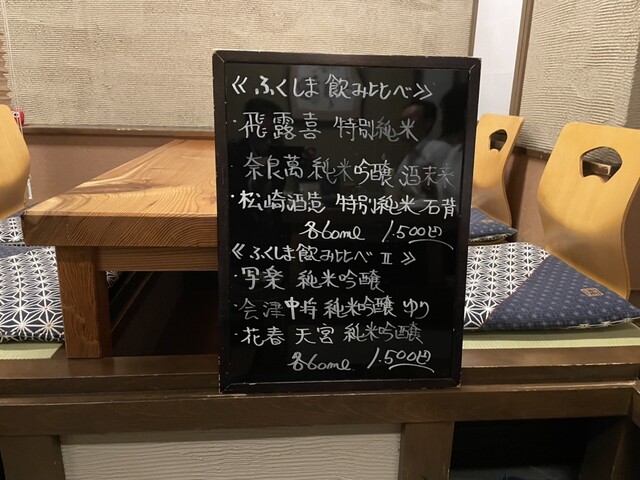 ≪ふくしま飲み比べ≫
・飛露喜 特別純米
・奈良萬 純米吟醸 酒未来
・松崎酒造 特別純米 石背
各60ml 1.500円
≪ふくしま飲み比べ Ⅱ≫
・写楽 純米吟醸
・会津中将 純米吟醸 ゆり
・花春 天宮 純米吟醸
各60ml 1.500円